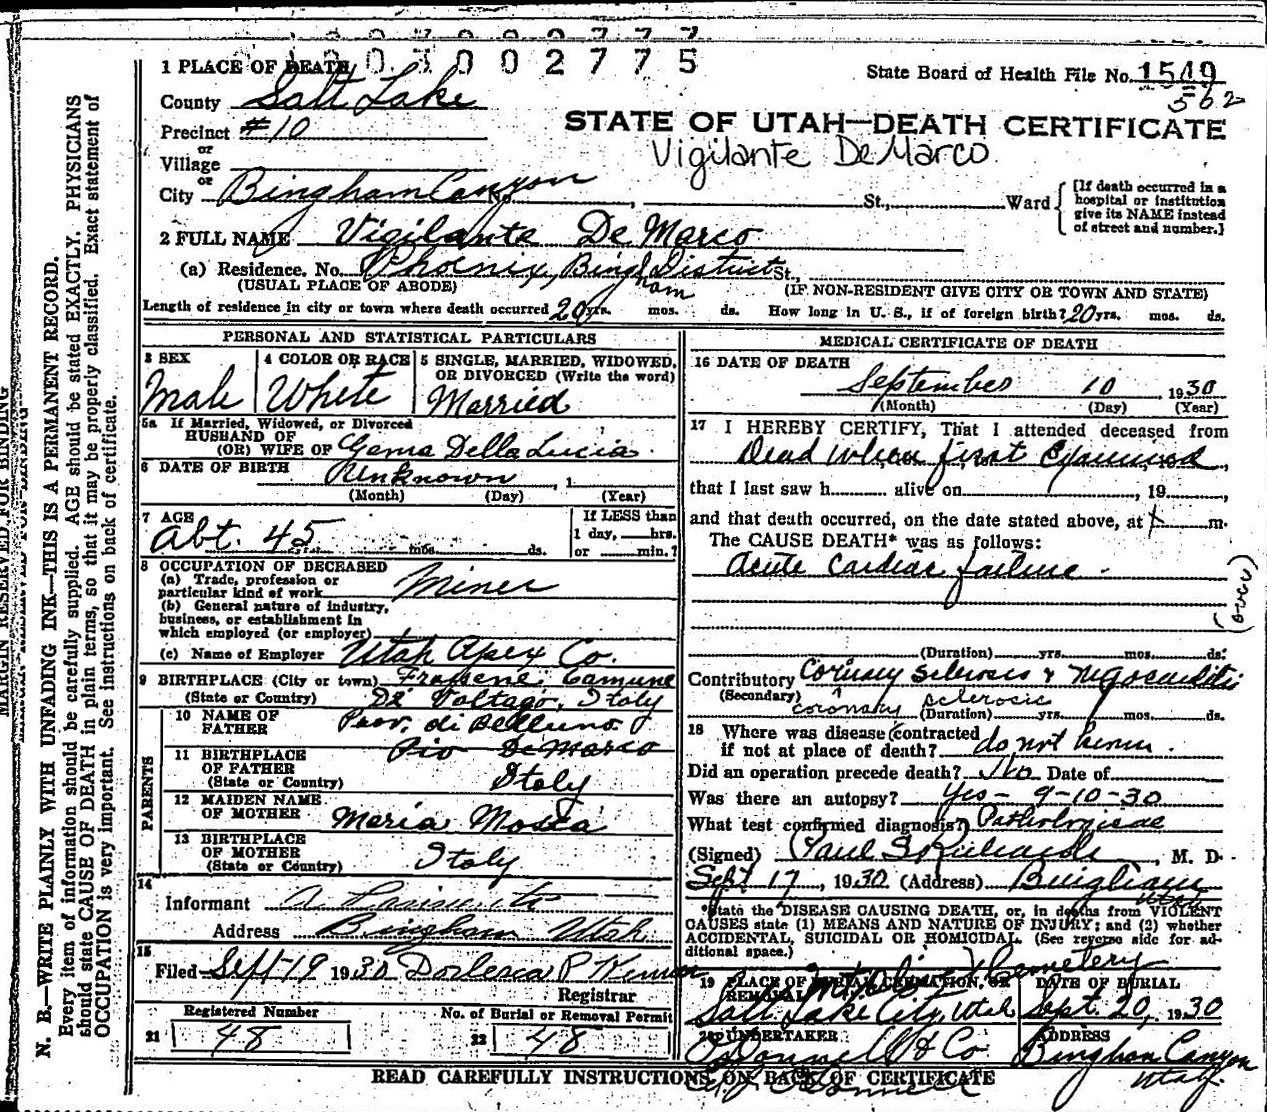 0 1 0 7 0 0 2 7 7 5
1 PLACE OF DEATH
State Board of Health File No. 1549
562
County Salt Lake
Precinct #10
or
Village
or
City Bingham Canyon No. , St., Ward
[If death occurred in a hospital or institution give its NAME instead of street and number.]
STATE OF UTAH—DEATH CERTIFICATE
Vigilante DeMarco
2 FULL NAME Vigilante De Marco
(a) Residence. No. Phoenix, Bingham District St.,
(USUAL PLACE OF ABODE) (IF NON-RESIDENT GIVE CITY OR TOWN AND STATE)
Length of residence in city or town where death occurred 20 yrs. mos. ds. How long in U. S., if of foreign birth? 20 yrs. mos. ds.
PERSONAL AND STATISTICAL PARTICULARS
3 SEX
Male
4 COLOR OR RACE
White
5 SINGLE, MARRIED, WIDOWED, OR DIVORCED (Write the word)
Married
5a If Married, Widowed, or Divorced
HUSBAND OF
(OR) WIFE OF Gema Della Lucia
6 DATE OF BIRTH Unknown , 1
(Month) (Day) (Year)
7 AGE
Abt. 45 mos. ds.
If LESS than
1 day, hrs.
or min.?
8 OCCUPATION OF DECEASED
(a) Trade, profession or
particular kind of work Miner
(b) General nature of industry,
business, or establishment in
which employed (or employer)
(c) Name of Employer Utah Apex Co.
9 BIRTHPLACE (City or town) Frassene Comune
(State or Country) Di Voltago, Italy
Prov. di Belluno
PARENTS
10 NAME OF
FATHER Pio De Marco
11 BIRTHPLACE
OF FATHER
(State or Country) Italy
12 MAIDEN NAME
OF MOTHER Maria Mosca
13 BIRTHPLACE
OF MOTHER
(State or Country) Italy
14
Informant A
Address Bingham Utah
15
Filed Sept 19 1930
Registrar
Registered Number
21 48
No. of Burial or Removal Permit
22 48
MEDICAL CERTIFICATE OF DEATH
16 DATE OF DEATH
September 10 1930
(Month) (Day) (Year)
17 I HEREBY CERTIFY, That I attended deceased from
Dead when first Examined
that I last saw h alive on , 19 ,
and that death occurred, on the date stated above, at m.
The CAUSE DEATH* was as follows:
Acute Cardiac failure
(over)
(Duration) yrs. mos. ds.
Contributory Coronary Sclerosis & Myocarditis
(Secondary) coronary sclerosis
(Duration) yrs. mos. ds.
18 Where was disease contracted
if not at place of death? do not know.
Did an operation precede death? No Date of
Was there an autopsy? Yes - 9-10-30
What test confirmed diagnosis? Pathological
(Signed) Paul S Richards , M. D.
Sept 17 , 1930 (Address) Bingham
Utah
*State the DISEASE CAUSING DEATH, or, in deaths from VIOLENT
CAUSES state (1) MEANS AND NATURE OF INJURY; and (2) whether
ACCIDENTAL, SUICIDAL OR HOMICIDAL. (See reverse side for ad-
ditional space.)
19 PLACE OF BURIAL, CREMATION, OR REMOVAL
Mt. Olivet Cemetery
Salt Lake City, Utah
DATE OF BURIAL
Sept. 20, 1930
20 UNDERTAKER
O'Donnell & Co
O'Donnell
ADDRESS
Bingham Canyon
Utah.
READ CAREFULLY INSTRUCTIONS ON BACK OF CERTIFICATE
MARGIN RESERVED FOR BINDING
N. B.—WRITE PLAINLY WITH UNFADING INK—THIS IS A PERMANENT RECORD.
Every item of information should be carefully supplied. AGE should be stated EXACTLY. PHYSICIANS
should state CAUSE OF DEATH in plain terms, so that it may be properly classified. Exact statement of
OCCUPATION is very important. See instructions on back of certificate.